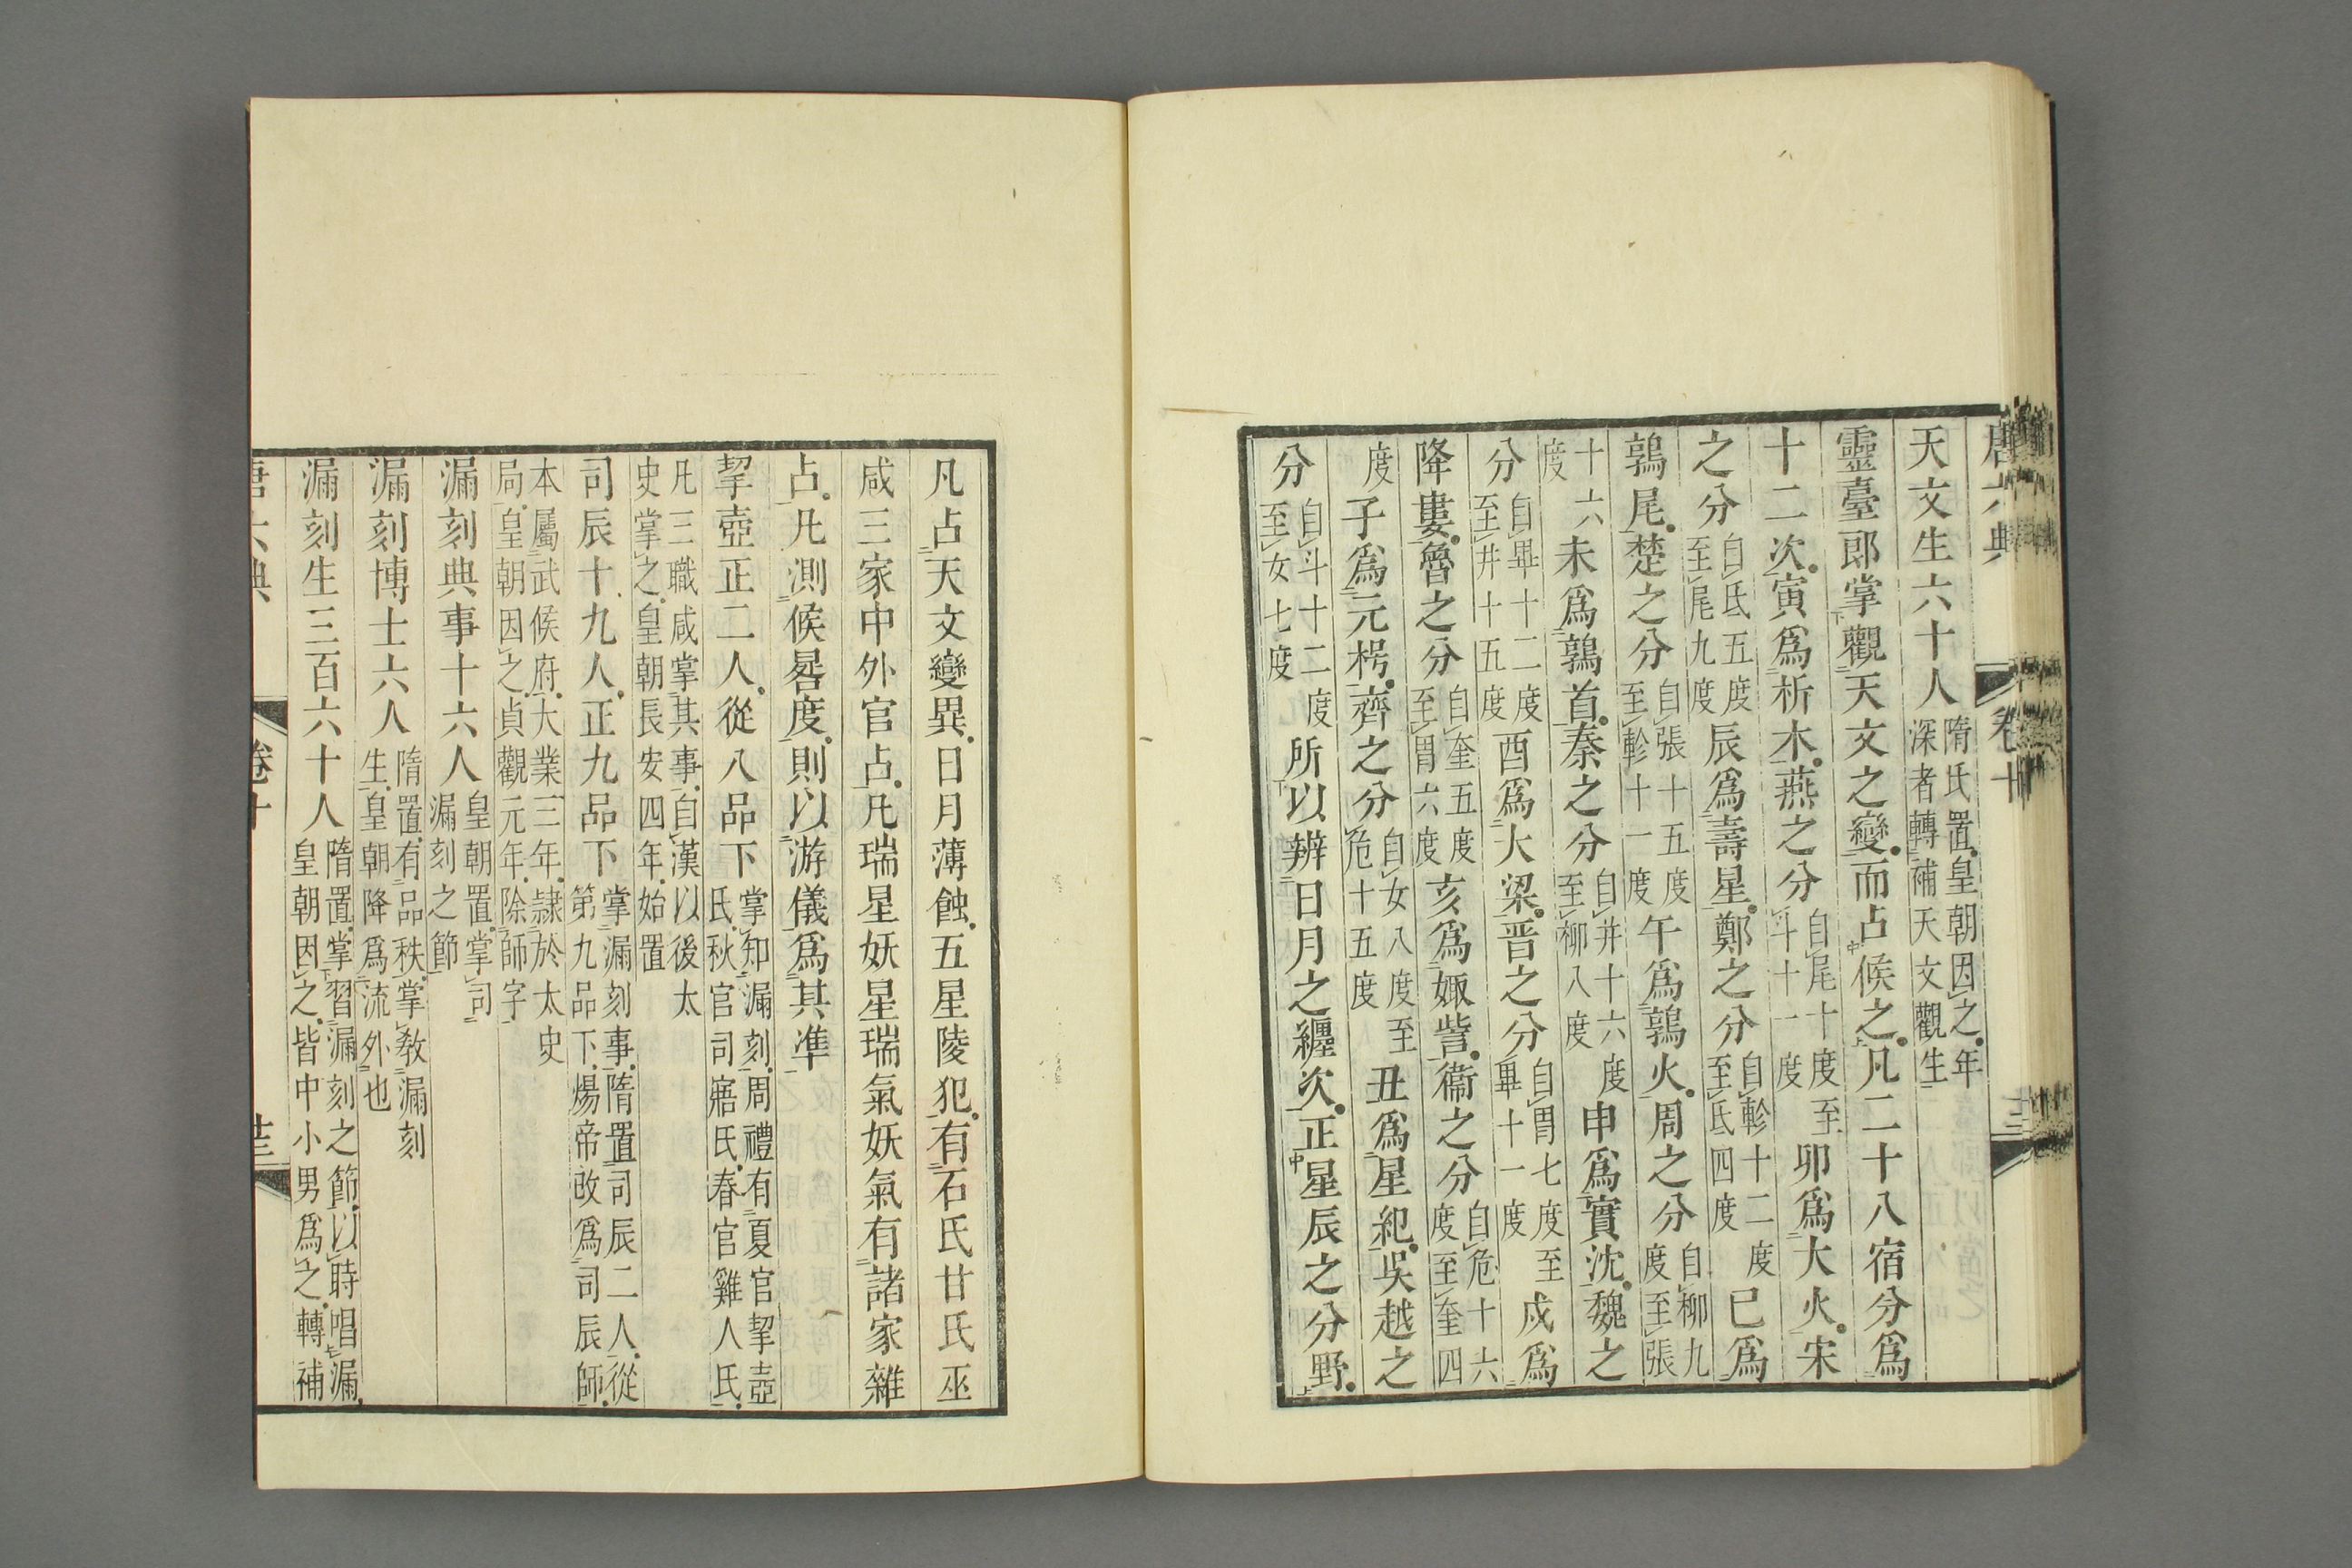 唐六典 卷十
天文生六十人 隋氏置。皇朝因之。年深者轉補天文觀生
靈臺郎掌觀天文之變。而占候之。凡二十八宿分爲
十二次。寅爲析木。燕之分 自尾十度至斗十一度 卯爲大火。宋
之分 自氐五度至尾九度 辰爲壽星。鄭之分 自軫十二度至氐四度 巳爲
鶉尾。楚之分 自張十五度至軫十一度 午爲鶉火。周之分 自柳九度至張
十六度 未爲鶉首。秦之分 自井十六度至柳八度 申爲實沈。魏之
分 自畢十二度至井十五度 酉爲大梁。晋之分 自胃七度至畢十一度 戌爲
降婁。魯之分 自奎五度至胃六度 亥爲娵訾。衞之分 自危十六度至奎四
度 子爲元枵。齊之分 自女八度至危十五度 丑爲星紀。吳越之
分 自斗十二度至女七度 所以辨日月之纏次。正星辰之分野。
凡占天文變異。日月薄蝕。五星陵犯。有石氏甘氏巫
咸三家中外官占。凡瑞星妖星瑞氣妖氣有諸家雜
占。凡測候晷度。則以游儀爲其準
挈壺正二人。從八品下 掌知漏刻。周禮有夏官挈壺氏。秋官司寤氏。春官雞人氏。
凡三職咸掌其事。自漢以後太史掌之。皇朝長安四年。始置
司辰十九人。正九品下 掌漏刻事。隋置司辰二人。從第九品下。煬帝改爲司辰師。
本屬武候府。大業三年。隷於太史局。皇朝因之。貞觀元年。除師字
漏刻典事十六人 皇朝置。掌司漏刻之節
漏刻博士六人 隋置。有品秩。掌敎漏刻生。皇朝降爲流外也
漏刻生三百六十人 隋置。掌習漏刻之節。以時唱漏。皇朝因之。皆中小男爲之。轉補
唐六典 卷十